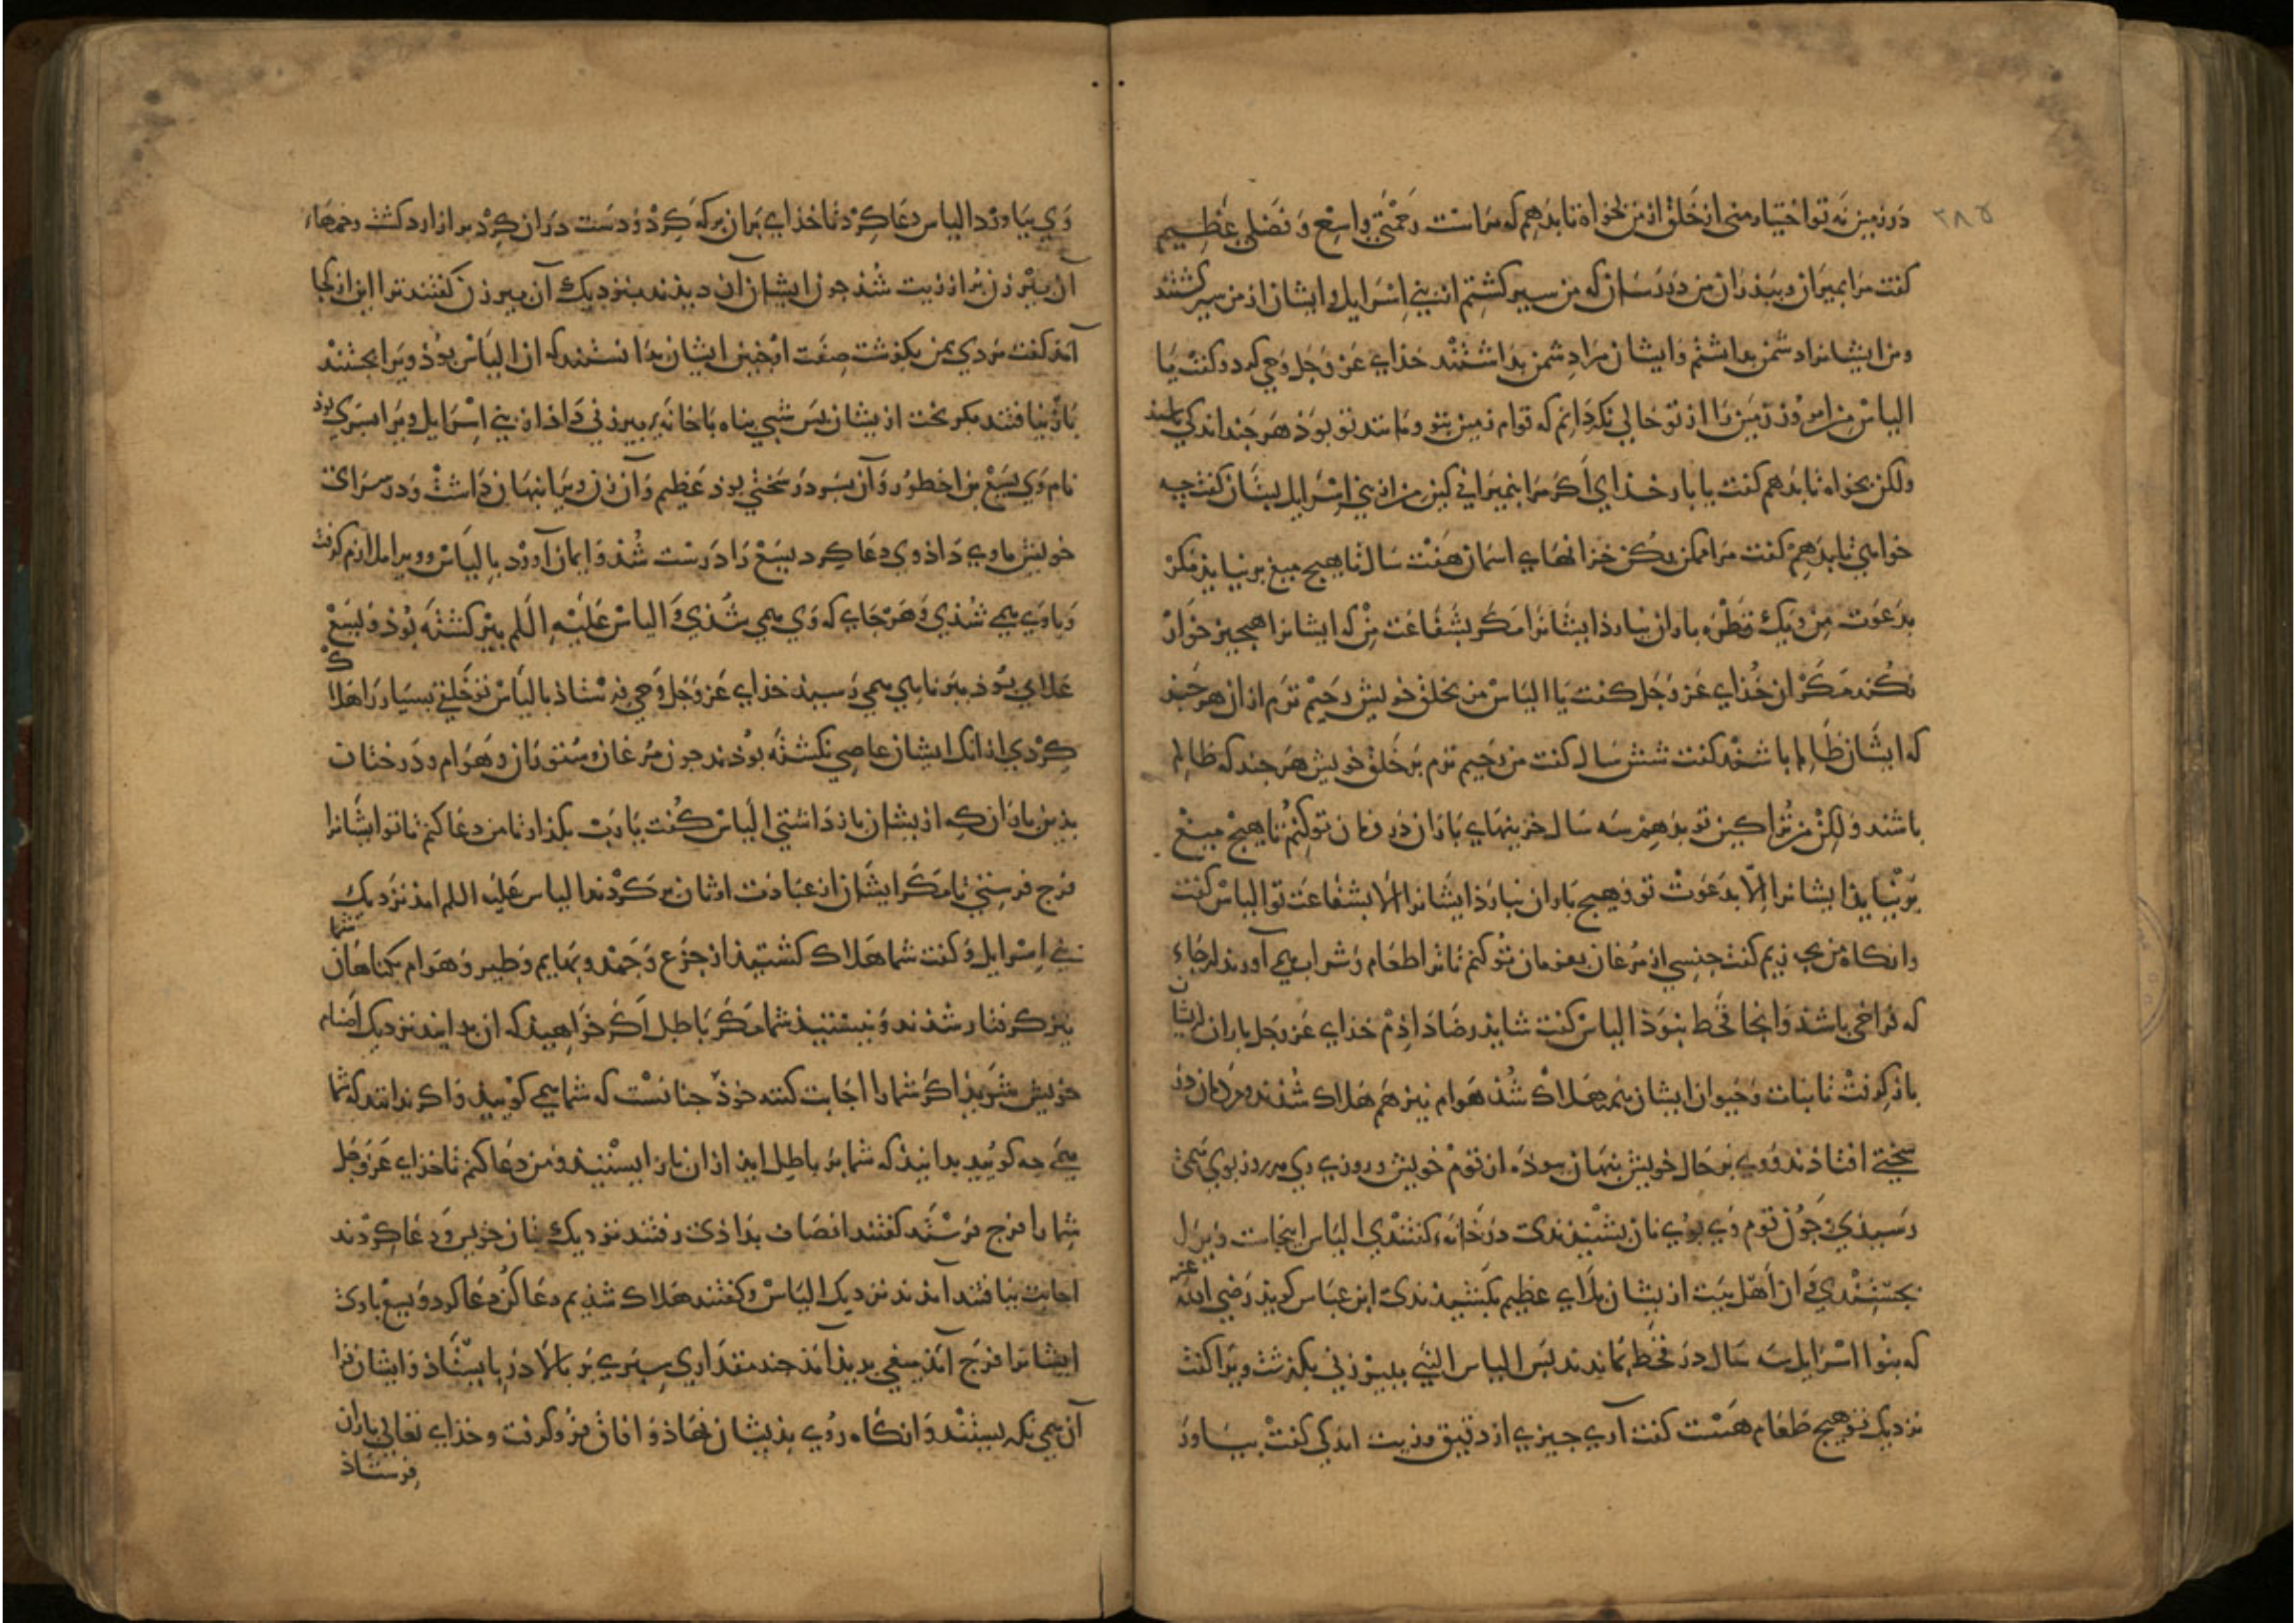 ۳۸۵
در زمین نه تو اختیار منی از خلق از من بخواه تا بدهم که مراست رحمتی واسع و فضلی عظیم
کفت مرا بمیران و بپذران من در رسان که من سیر کشتم از بنی اسرایل و ایشان از من سیر کشتند
و من ایشانرا دشمن بداشتم و ایشان مرا دشمن بداشتند خذای عز و جل وحی کرد و کفت یا
الیاس من امروز زمین را از تو خالی نکردانم که قوام زمین بتو و مانند تو بوذ هر چند اندکی باشید
ولکن بخواه تا بدهم کفت یا بار خذای اکر مرا بنمیرانی کین من از بنی اسرایل بستان کفت چه
خواهی تا بدهم کفت مرا ممکن کن خزانهای اسمان هفت سال تا هیچ میغ برنیاید مکر
بدعوت من و یک قطره باران نبارذ ایشانرا مکر بشفاعت من که ایشانرا هیچیز خوار
نکند مکر ان خذای عز و جل کفت یا الیاس من بخلق خویش رحیم ترم از ان هر چند
که ایشان ظالم باشند کفت شش سال کفت من رحیم ترم بر خلق خویش هر چند که ظالم
باشند ولکن من ترا کین تو بدهم سه سال خزینهای باران در فرمان تو کنم تا هیچ میغ
برنیاید ایشانرا الا بدعوت تو و هیچ باران نبارذ ایشانرا الا بشفاعت تو الیاس کفت
وانکاه من بچه زیم کفت جنسی از مرغان بفرمان تو کنم تا ترا طعام و شراب همی آورند از جاء
که فراخی باشذ و انجا قحط نبوذ الیاس کفت شایذ رضا داذم خذای عز و جل باران از ایشان
باز کرفت تا نبات و حیوان ایشان همه هلاک شد هوام نیز هم هلاک شذند و مردمان در
سختی افتاذند و وی بر حال خویش پنهان بوذه از قوم خویش و روزی وی هر روز بوی همی
رسیذی و چون قوم وی بوی نان بشنیذندی در خانه کفتندی الیاس اینجاست ویرا
بجستندی و ان اهل بیت از ایشان بلای عظیم بکشیذندی ابن عباس کویذ رضی الله عنه
که بنوا اسرایل سه سال در قحط بماندند پس الیاس النبی ببیوزنی بکذشت ویرا کفت
نزدیک تو هیچ طعام هست کفت آری چیزی از دقیق و زیت اندکی کفت بیاور
وی بیاورد الیاس دعا کرد تا خذای بران برکه کرد و دست دران کرد پر از ارد کشت و خمهاء
آن پیرزن پر از زیت شذ چون ایشان آن دیذند بنزدیک آن پیرزن کفتند ترا این از کجا
آمذ کفت مردی بمن بکذشت صفت او چنین ایشان بدانستند که ان الیاس بوذ ویرا بجستند
باز نیافتند بکریخت از یشان پس شبی پناه با خانه پیرزنی داذ از بنی اسرایل ویرا پسری بوذ
نام وی یسع بن اخطور و آن پسر در سختی بوذ عظیم و آن زن ویرا پنهان داشت و در سرای
خویش ماوی داذ وی دعا کرد یسع را درست شذ و ایمان آورد بالیاس و ویرا ملازم کرفت
و با وی همی شذی و هر جای که وی همی شذی و الیاس علیه السلم پیر کشته بوذ و یسع
غلامی بوذ ببرنایی همی رسیذ خذای عز و جل وحی فرستاذ بالیاس تو خلقی بسیار را هلاک
کردی از انک ایشان عاصی نکشته بوذند چون مرغان و ستوران و هوام و درختان
بذین باران که از یشان باز داشتی الیاس کفت یا رب بکذار تا من دعا کنم تا تو ایشانرا
فرج فرستی تا مکر ایشان از عبادت اوثان برکردند الیاس علیه السلم امذ نزدیک
بنی اسرایل و کفت شما هلاک کشتیذ از جوع و جهد و بهایم و طیر و هوام بکناهان شما
نیز کرفتار شذند و نیستید شما مکر باطل اکر خواهید که ان بدانید نزدیک اصنام
خویش شوید اکر شمارا اجابت کنند خوذ چنانست که شما همی کویید و اکر نه بدانید که شما
همی چه کویید بدانید که شما بر باطل ایذ از ان باز ایستید و من دعا کنم تا خذای عز و جل
شمارا فرج فرستد کفتند انصاف بداذی رفتند نزدیک بتان خویش و دعا کردند
اجابت نیافتند آمذند نزدیک الیاس و کفتند هلاک شذیم دعا کن دعا کرد و یسع با وی
ایشانرا فرج آمذ میغی بدیذ آمذ چند مقداری سپری بر بالا دریا بیستاذ و ایشان فرا
آن همی نکریستند و انکاه روی بذیشان نهاذ و افاق فرو کرفت و خذای تعالی باران
فرستاذ